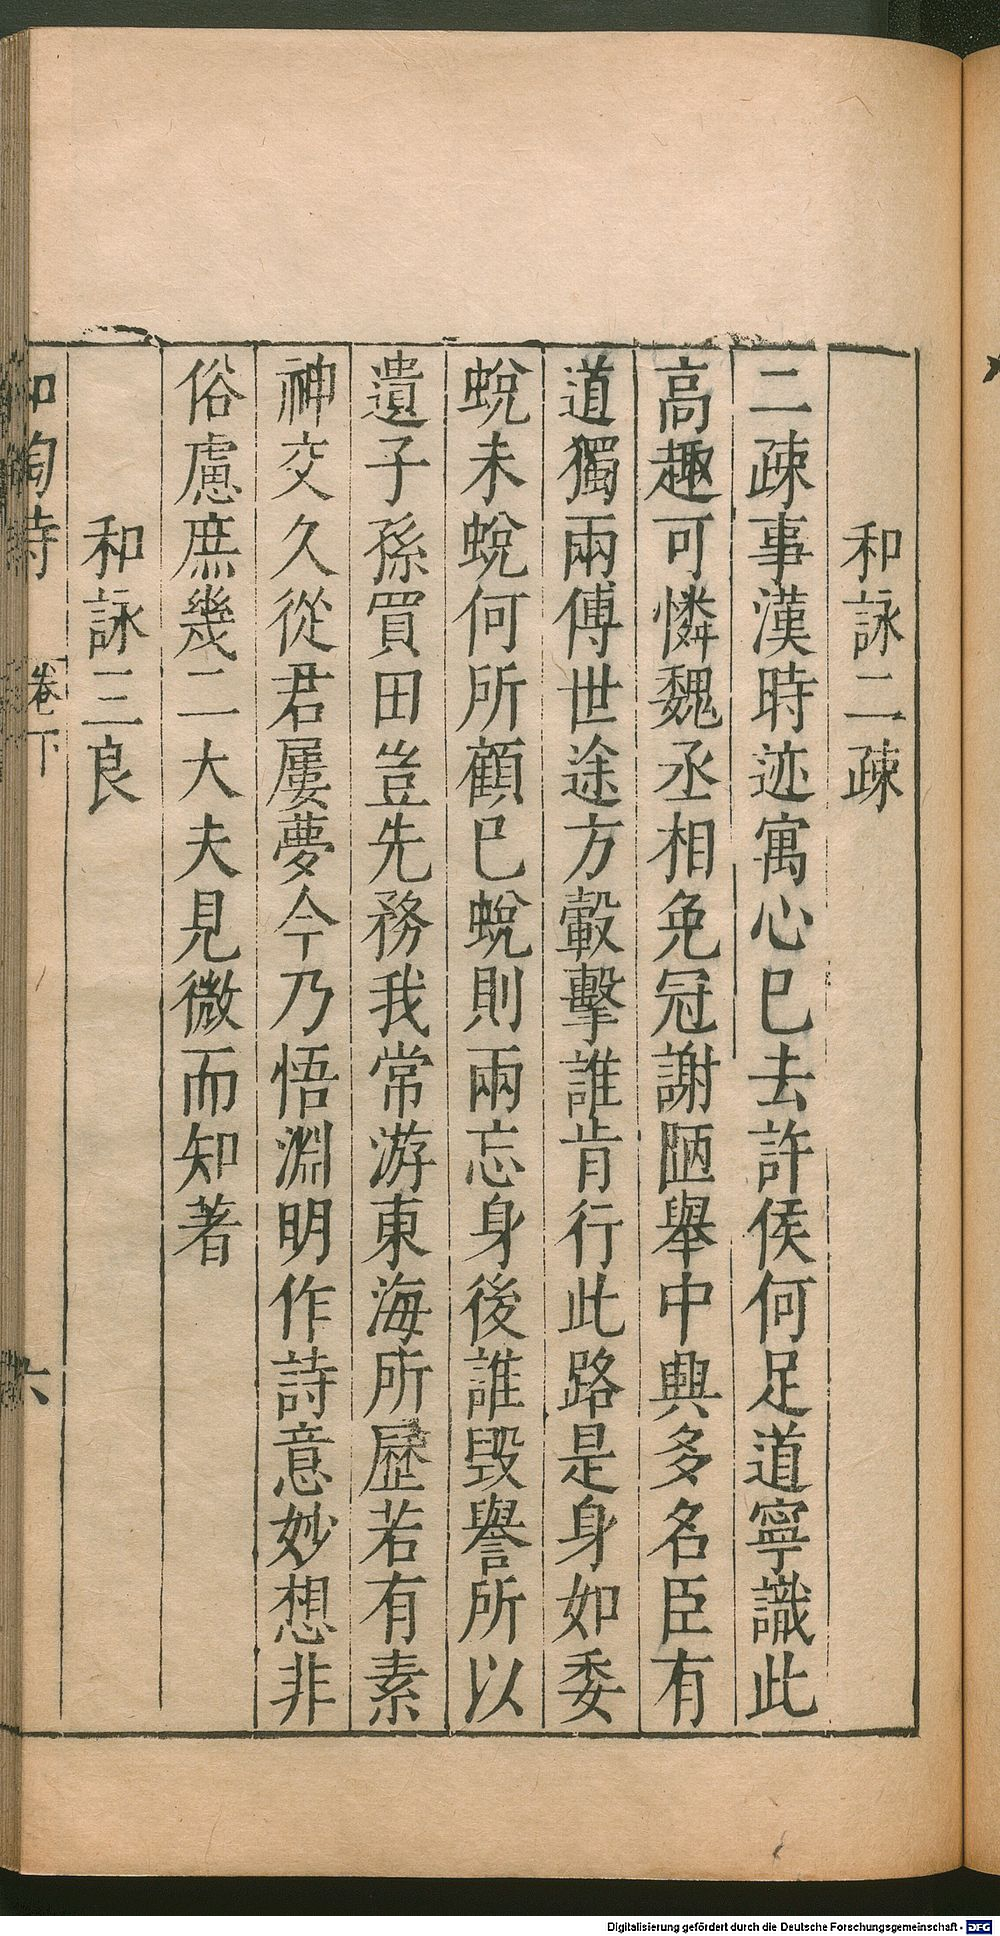 和詠二疎
二疎事漢時迹寓心已去許侯何足道寧識此
高趣可憐魏丞相免冠謝陋舉中興多名臣有
道獨兩傅世途方轂擊誰肯行此路是身如委
蛻未蛻何所顧已蛻則兩忘身後誰毀譽所以
遺子孫買田豈先務我常游東海所歷若有素
神交久從君屢夢今乃悟淵明作詩意妙想非
俗慮庶幾二大夫見微而知著
和詠三良
和陶詩 卷下 六
Digitalisierung gefördert durch die Deutsche Forschungsgemeinschaft - DFG